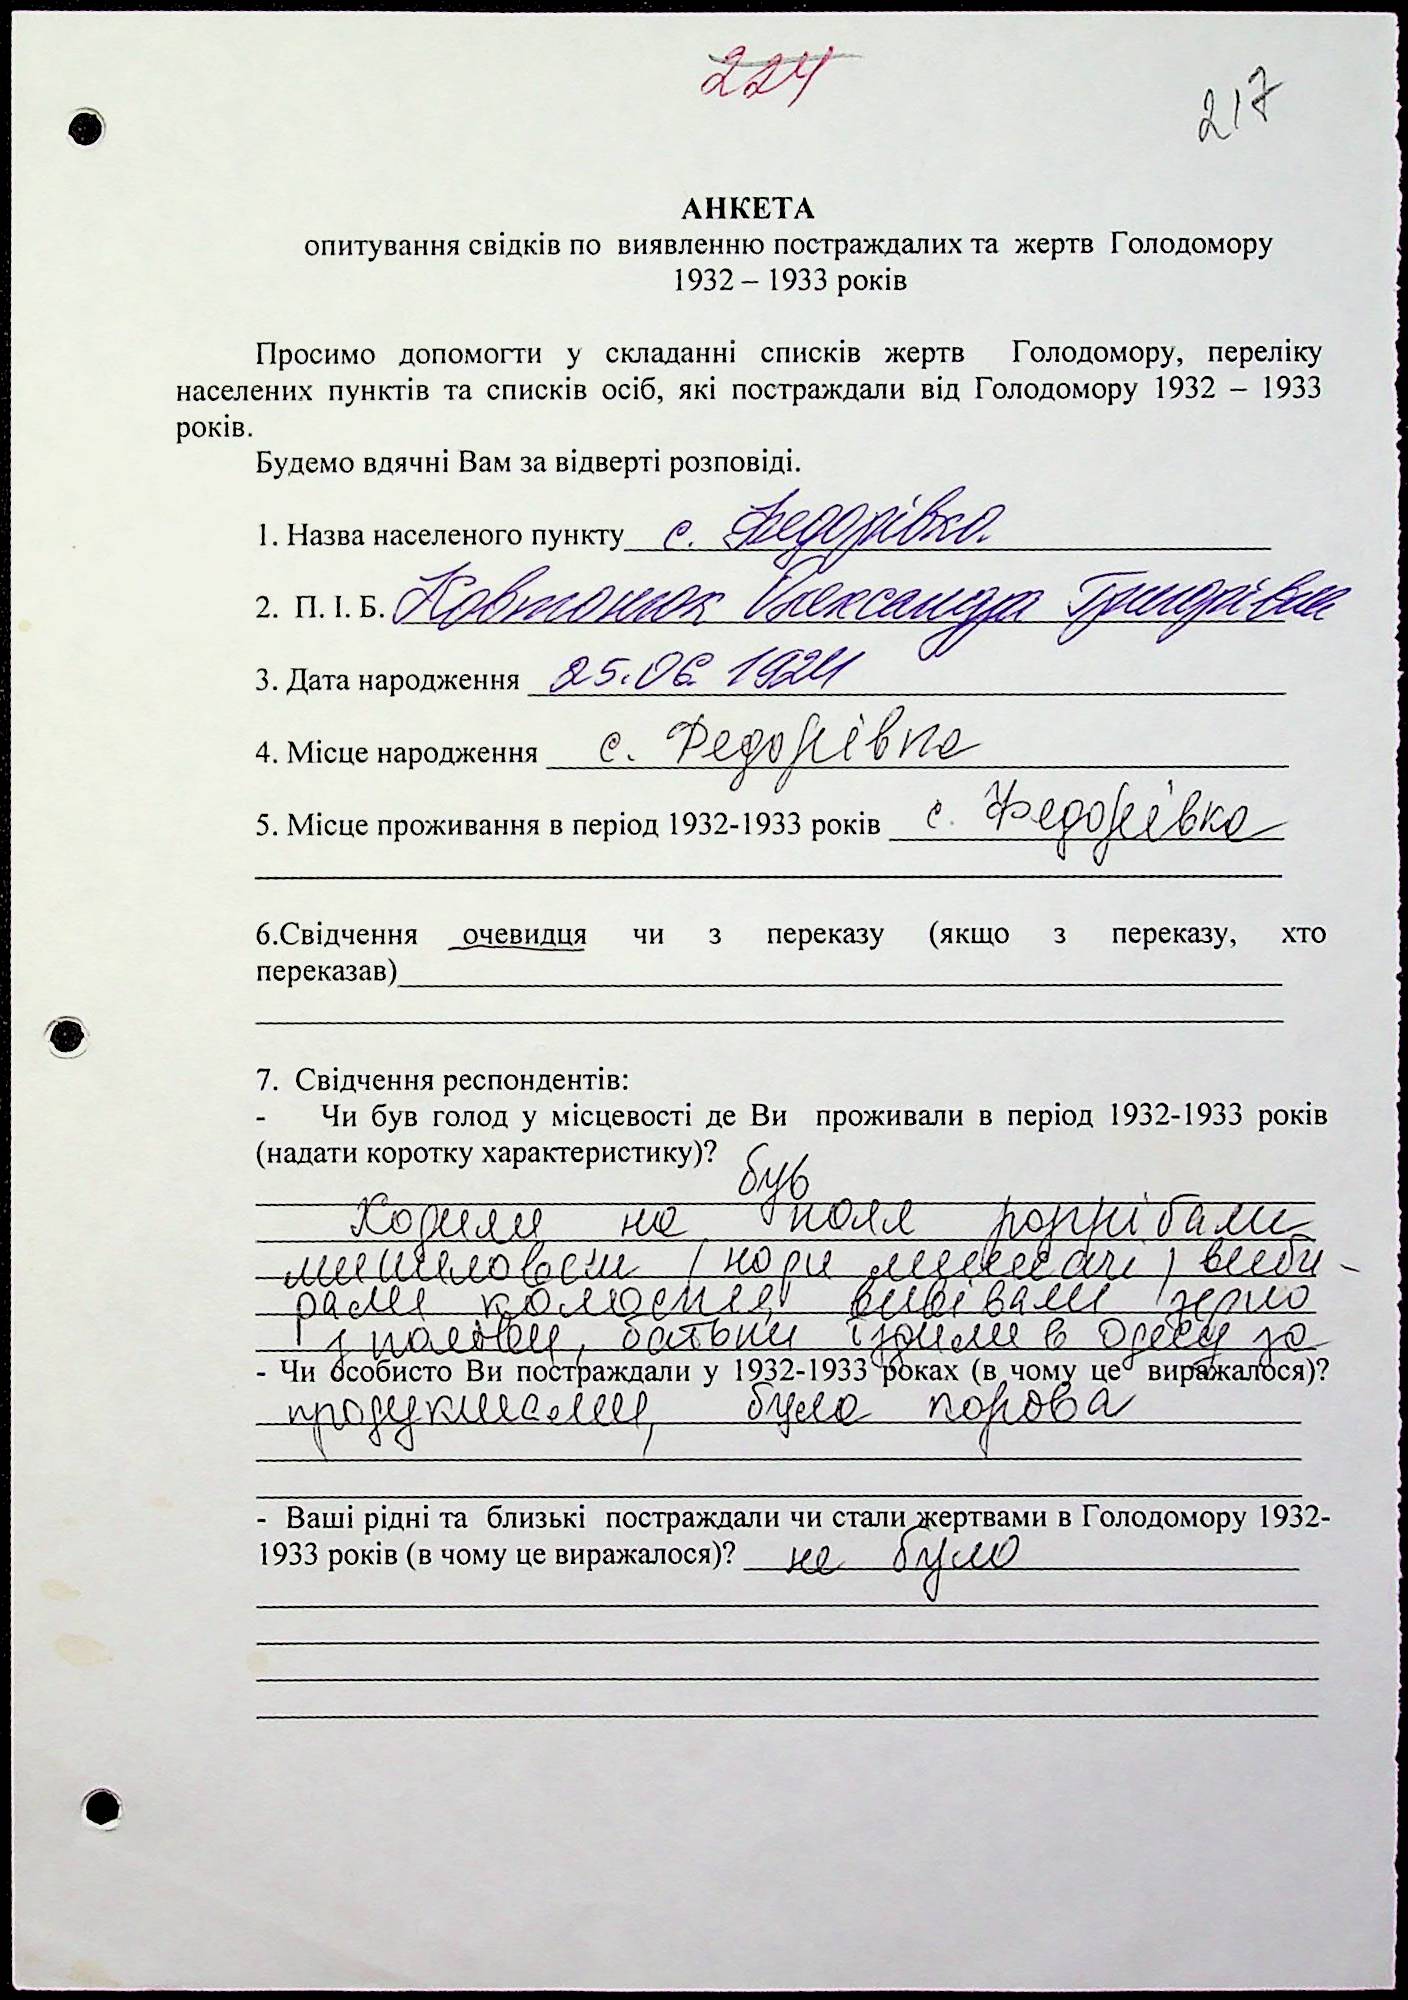 224
217
АНКЕТА
опитування свідків по виявленню постраждалих та жертв Голодомору
1932 – 1933 років
Просимо допомогти у складанні списків жертв Голодомору, переліку
населених пунктів та списків осіб, які постраждали від Голодомору 1932 – 1933
років.
Будемо вдячні Вам за відверті розповіді.
1. Назва населеного пункту с. Федорівка.
2. П. І. Б. Ковтонюк Олександра Григорівна
3. Дата народження 25.06.1924
4. Місце народження с. Федорівка
5. Місце проживання в період 1932-1933 років с. Федорівка
6.Свідчення очевидця чи з переказу (якщо з переказу, хто
переказав)
7. Свідчення респондентів:
- Чи був голод у місцевості де Ви проживали в період 1932-1933 років
(надати коротку характеристику)?
був
Ходили на поля розгрібали
(нори мишачі) виби-
рали колосся, вивівали зерно
з полови, батьки їздили в Одесу за
- Чи особисто Ви постраждали у 1932-1933 роках (в чому це виражалося)?
продуктами, була корова
- Ваші рідні та близькі постраждали чи стали жертвами в Голодомору 1932-
1933 років (в чому це виражалося)? не було